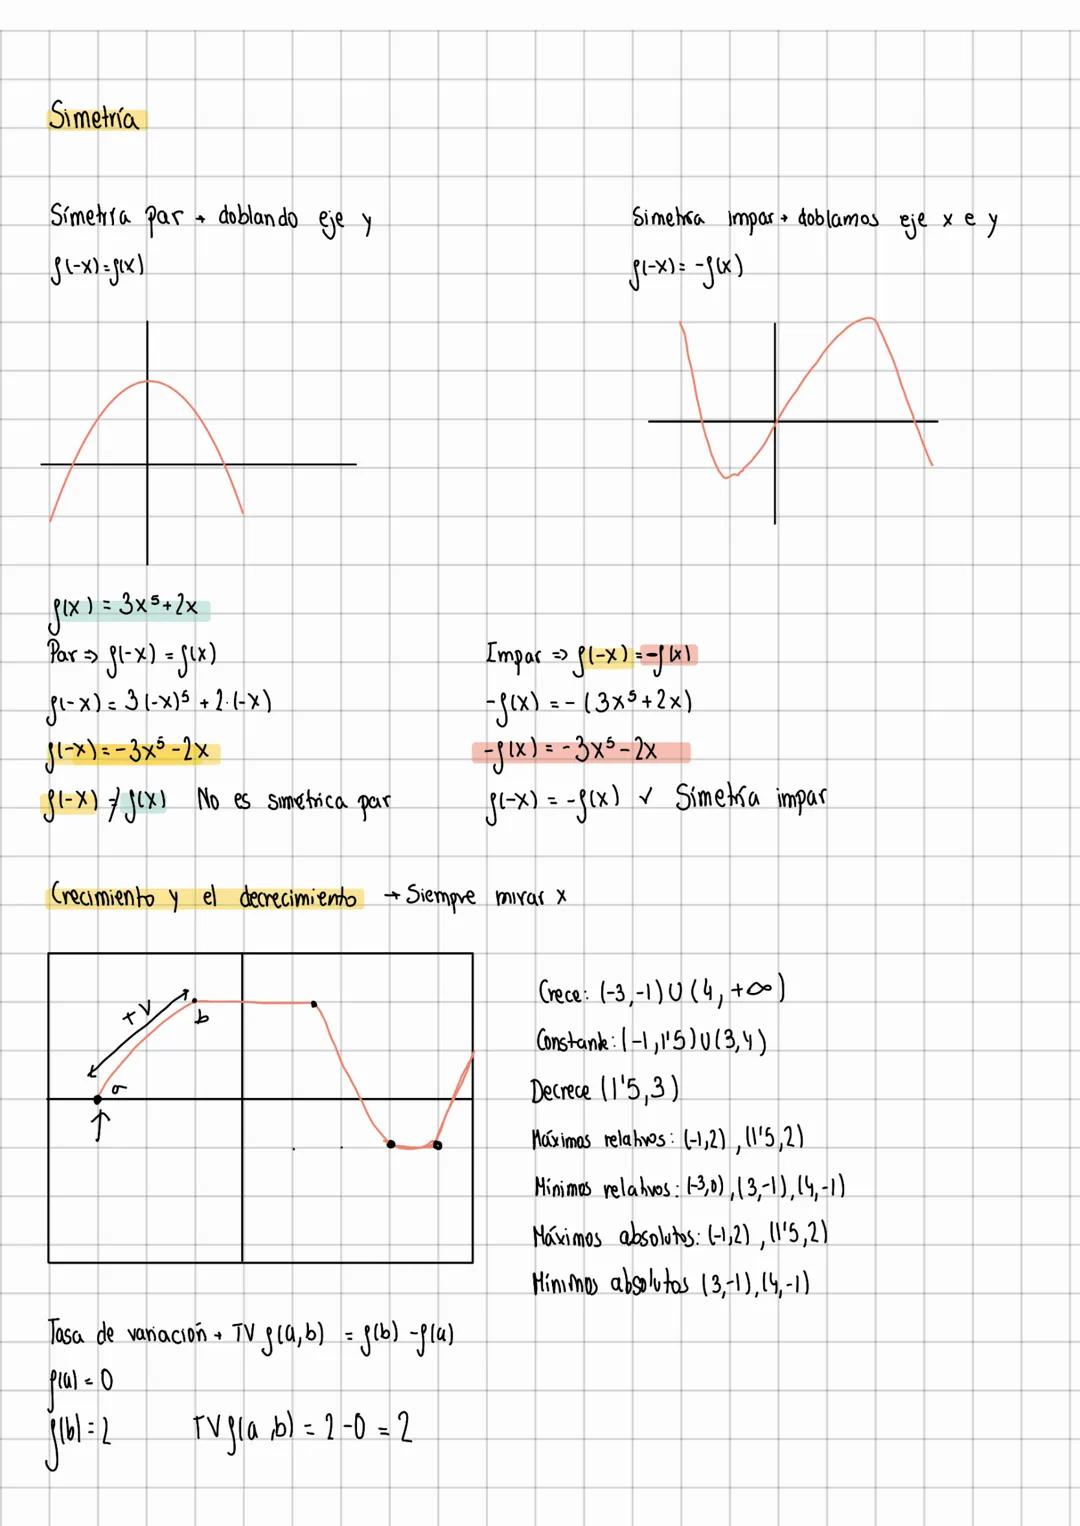 Simetría
Simetría par → doblando eje y
f(-x)=f(x)
Simetría impar → doblamos eje x e y
f(-x)= -f(x)
f(x) = 3x⁵+2x
Par ⇒ f(-x) = f(x)
f(-x) = 3(-x)⁵ + 2·(-x)
f(-x) = -3x⁵ -2x
f(-x) ≠ f(x) No es simétrica par
Impar ⇒ f(-x) = -f(x)
-f(x) = -(3x⁵+2x)
-f(x) = -3x⁵-2x
f(-x) = -f(x) ✓ Simetría impar
Crecimiento y el decrecimiento → Siempre mirar x
+V
b
a
Crece: (-3,-1)U(4,+∞)
Constante: (-1,1'5)U(3,4)
Decrece (1'5,3)
Máximos relativos: (-1,2), (1'5,2)
Mínimos relativos: (-3,0), (3,-1), (4,-1)
Máximos absolutos: (-1,2), (1'5,2)
Mínimos absolutos (3,-1), (4,-1)
Tasa de variación → TV f(a,b) = f(b) -f(a)
f(a) = 0
f(b) = 2 TV f(a,b) = 2-0 = 2